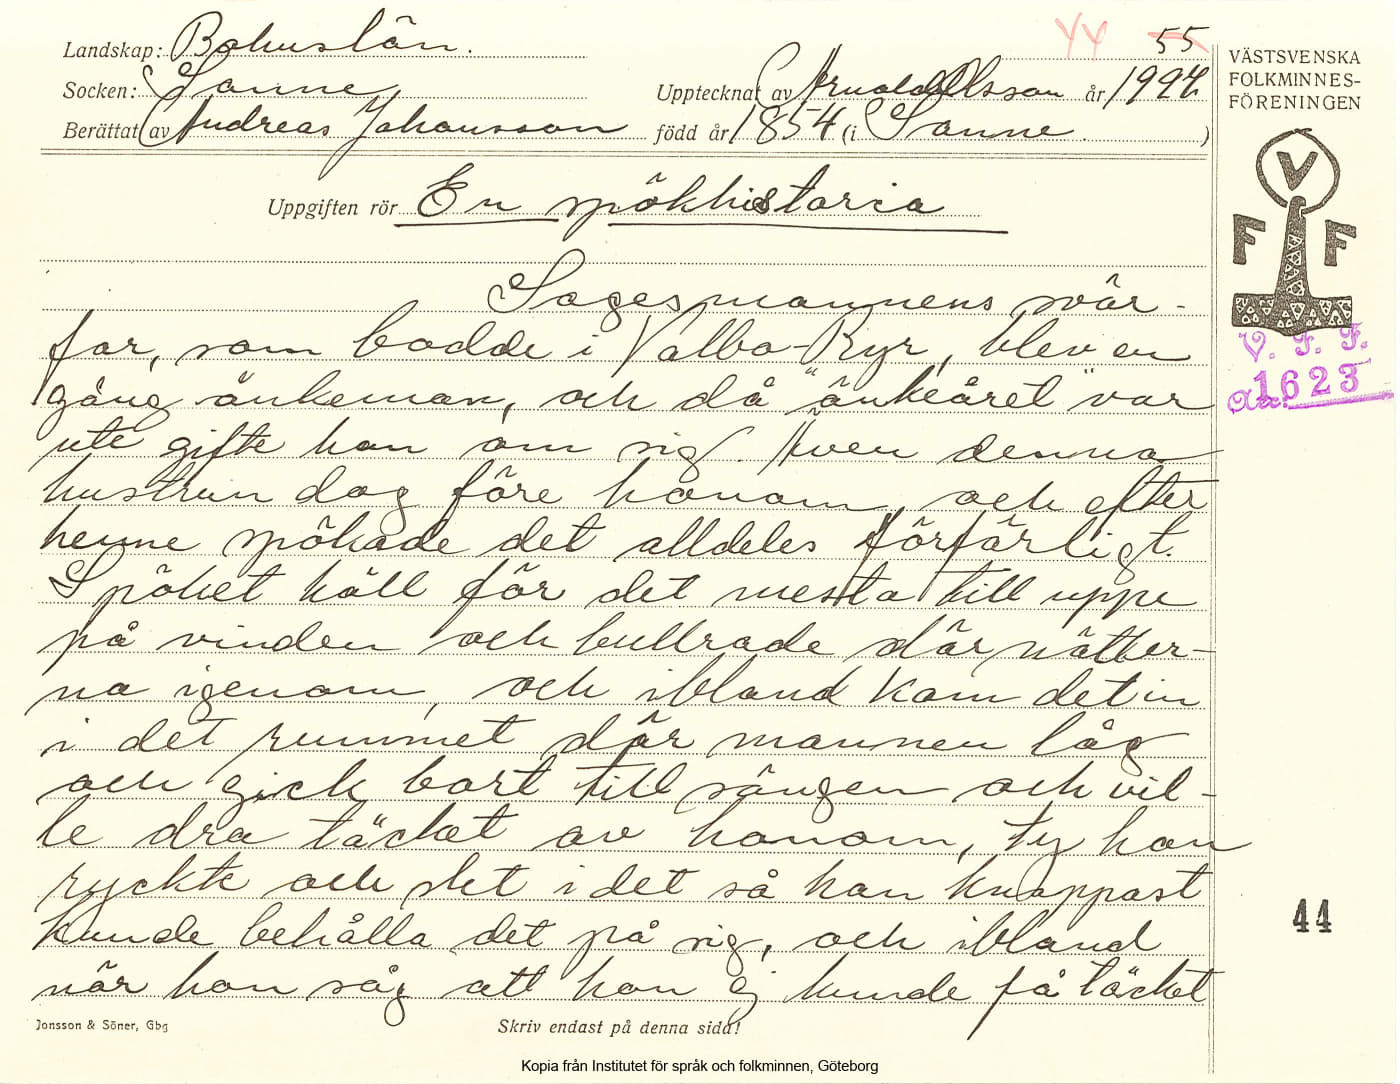 44 55
Landskap: Bohuslän.
Socken: Sanne
Upptecknat av Arnold Olsson år 1924
Berättat av Andreas Johansson född år 1854 (i Sanne )
Uppgiften rör En spökhistoria
Sagesmannens svär-
far, som bodde i Valbo-Ryr, blev en
gång änkeman, och då "änkeåret" var
ute gifte han om sig. Även denna
hustrun dog före honom och efter
henne spökade det alldeles förfärligt.
Spöket höll för det mesta till uppe
på vinden och bullrade där nätter-
na igenom, och ibland kom det in
i det rummet där mannen låg
och gick bort till sängen och vil-
le dra täcket av honom, ty hon
ryckte och slet i det så han knappast
kunde behålla det på sig, och ibland
när hon såg att hon ej kunde få täcket
VÄSTSVENSKA
FOLKMINNES-
FÖRENINGEN
V
F F
V. F. F.
1623
44
Jonsson & Söner, Gbg
Skriv endast på denna sida!
Kopia från Institutet för språk och folkminnen, Göteborg